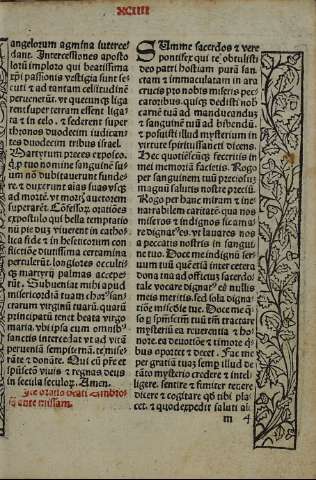 XCIIII
angelorum agmina interce
dant. Intercessiones aposto
loꝝ imploro qui beatissima
xp̄i passionis vestigia sunt se
cuti ⁊ ad tantam celsitudinē
peruenerūt. vt quecunqꝫ liga
rent super terram essent liga
ta ⁊ in celo. ⁊ sederent super
thronos duodecim iudican
tes duodecim tribus israel.
Martyrum preces exposco.
q̇ p tuo nomine sanguinē su
um nō dubitauerunt funde
re. ⁊ duxerunt aīas suas vsqꝫ
ad mortē. vt mortꝭ auctorem
superarēt. Cōfessoꝝ. oratiōes
expostulo qui bella temptatio
nū pie duꝫ viuerent in catho
lica fide ⁊ in hesiticorum con
fictiōe diutissima certamina
pertulerūt. longisates occulti
qꝫ martyrij palmas acceper
ūt. Subueniat mihi apud
misericordiā tuam choꝝ san
ctarum virginū tuarū. quarū
principatū tenet beata virgo
maria. vbi ipsa cum omnibꝰ
sanctis intercedat vt ad vitā
perueniā sempiternā. te mise
rante ⁊ donante. Qui cū pr̄e et
spūsctō viuis ⁊ regnas deus
in secula seculoꝝ. Amen.
Itē oratio beati Ambrosi
ante missam.
Summe sacerdos ⁊ vere
pontifex qui te obtulisti
deo patri hostiam purā san
ctam ⁊ immaculatam in ara
crucis pro nobis miseris pec
catoribus. quiqꝫ dedisti nob̄
carnē tuā ad manducandus
⁊ sanguinē tuū ad bibendū.
⁊ posuisti illud mysterium in
virtute spiritussancti dicens.
Hec quotiēscūqꝫ feceritis in
mei memoriā facietis. Rogo
per sanguinem tuū preciosuꝫ
magnū salutis nostre preciū.
Rogo per hanc miram ⁊ ine
narrabilem caritatē. qua nos
miseros ⁊ indignos sic ama
re dignatꝰ es. vt lauares nos
a peccatis nostris in sangui
ne tuo. Doce me indignū ser
uum tuū quē inter cetera
dona tua ad officiuꝫ sacerdo
tale vocare dignatꝰ es nullis
meis meritis. sed sola digna
tiōe misēdie tue. Doce me q̄
so p spiritum tuū tm̄ tractare
mysteriū ea reuerentia ⁊ ho
more. ea deuotiōe ⁊ timore q̄
bus oportet ⁊ decet. Fac me
per gratiā tuaꝫ semꝑ illud de
tāto mysterio credere ⁊ intel
ligere. sentire ⁊ firmiter tenere
dicere ⁊ cogitare qd̄ tibi pla
cet. ⁊ quod expedit saluti ai
m 4